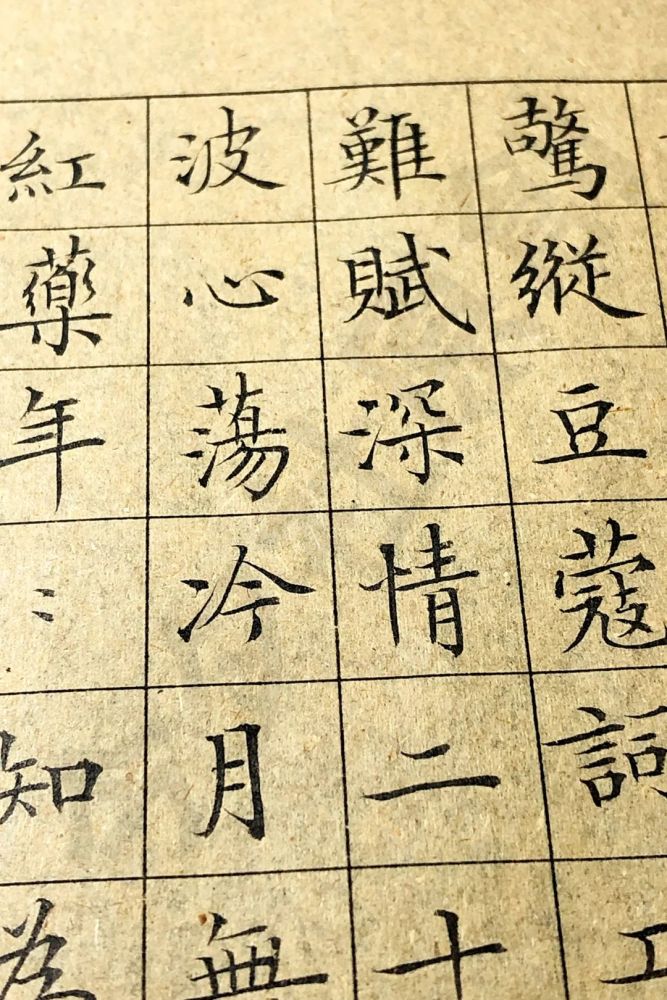 驚縱豆蔻詞工
難賦深情二十
波心蕩冷月無
紅藥年〻知為